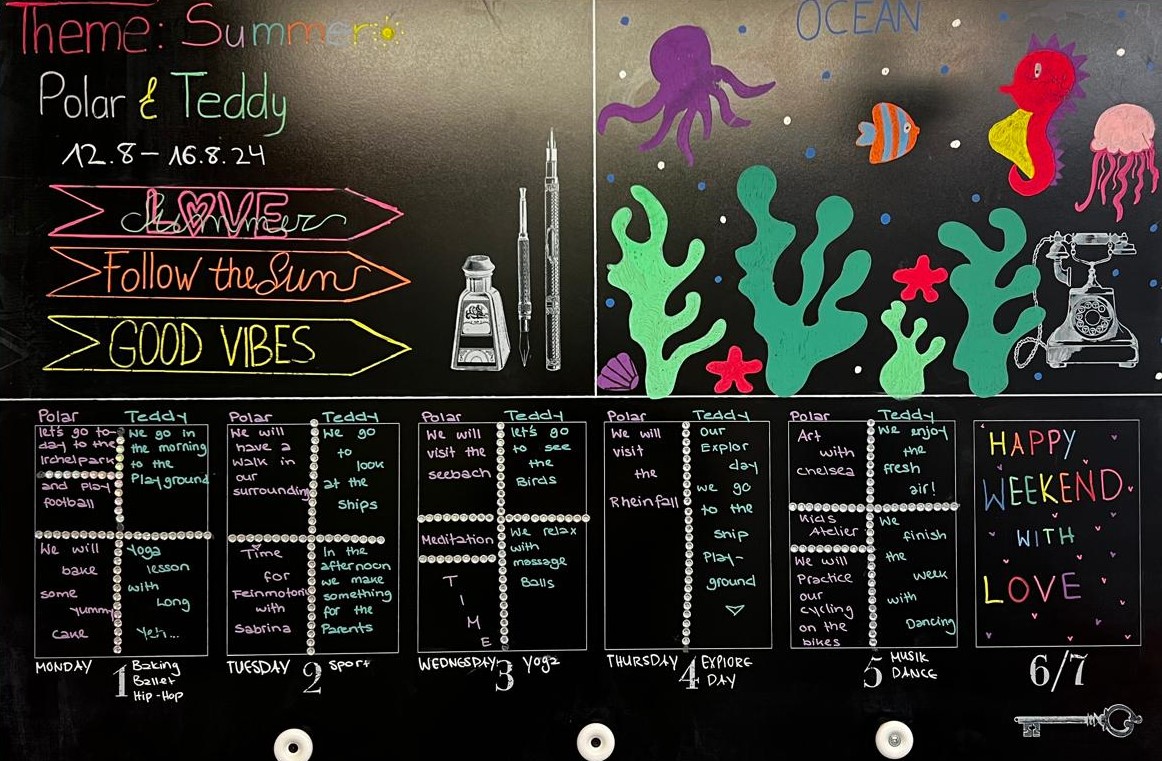 Theme: Summer
Polar & Teddy
12.8 – 16.8.24
LOVE
Summer
Follow the Sun
GOOD VIBES
OCEAN
Polar
let's go to-
day to the
Irchelpark
and play
football
We will
bake
some
yummy
cake
Teddy
We go in
the morning
to the
Playground
Yoga
lesson
with
Long
Yeh...
MONDAY 1
Baking
Ballet
Hip-Hop
Polar
We will
have a
walk in
our
surrounding
Time
for
Feinmotorik
with
Sabrina
Teddy
We go
to
look
at the
ships
In the
afternoon
we make
something
for the
Parents
TUESDAY 2 Sport
Polar
We will
visit the
seebach
Meditation
T
I
M
E
Teddy
let's go
to see
the
Birds
We relax
with
massage
Balls
WEDNESDAY 3 Yoga
Polar
We will
visit
the
Rheinfall
Teddy
Our
Explor
day
we go
to the
ship
Play-
ground
THURSDAY 4 EXPLORE
DAY
Polar
Art
with
chelsea
Kids
Atelier
We will
Practice
our
cycling
on the
bikes
Teddy
We enjoy
the
fresh
air!
We
finish
the
week
with
Dancing
FRIDAY 5 MUSIK
DANCE
HAPPY
WEEKEND
WITH
LOVE
6/7